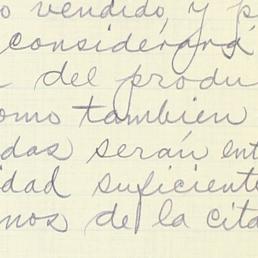 o vendido, y p
considerará
del produ
omo tambien
das serán ent
idad suficiente
nos de la cita